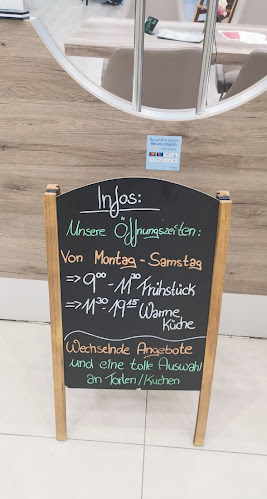 Infos:
Unsere Öffnungszeiten:
Von Montag - Samstag
⇒ 9⁰⁰ - 11³⁰ Frühstück
⇒ 11³⁰ - 19¹⁵ Warme
Küche
Wechselnde Angebote
und eine tolle Auswahl
an Torten/Kuchen